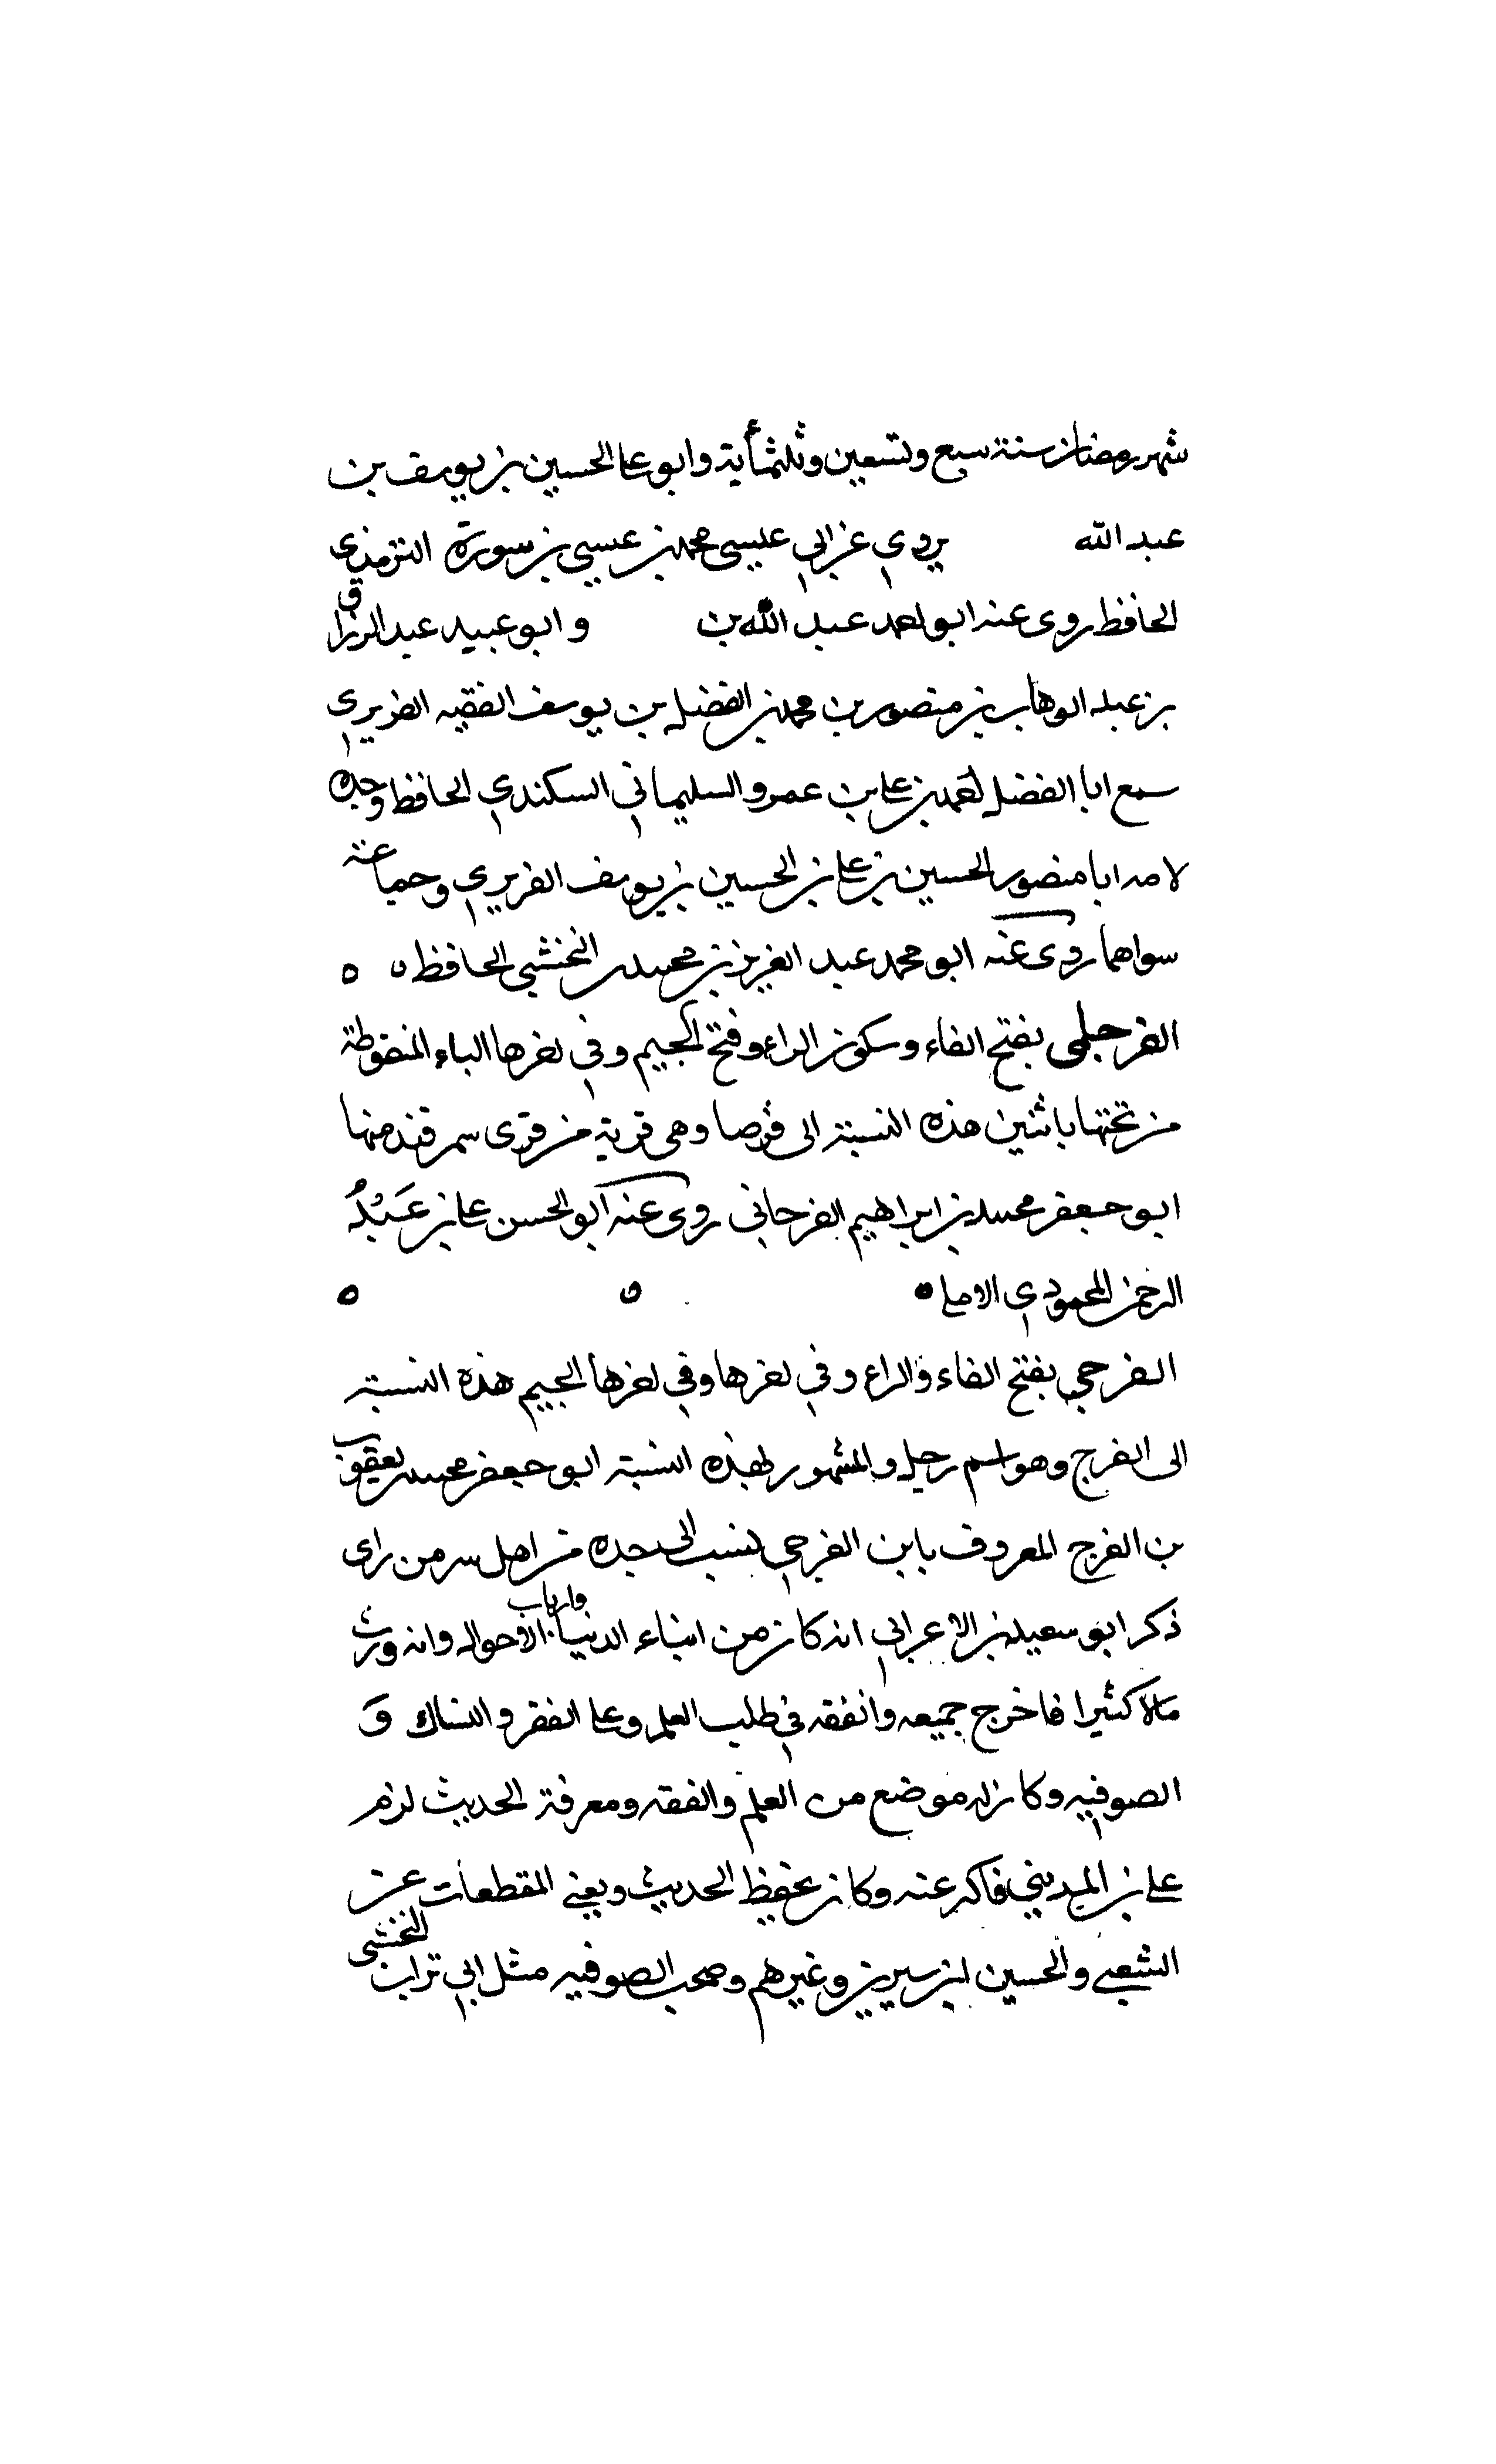 شهر رمضان سنة سبع وتسعين وثلثمأية وابو على الحسين بن يوسف بن
عبد الله يروي عن ابي عيسى محمد بن عيسى بن سورة الترمذي
الحافظ روى عنه ابو احمد عبد الله بن وابو عبيد عبد الرزاق
بن عبد الوهاب بن منصور بن محمد بن الفضل بن يوسف الفقيه الفربري
سمع ابا الفضل احمد بن على بن عمرو السليماني السكندي الحافظ وجده
لامه ابا منصور الحسين بن على بن الحسين بن يوسف الفربري وجماعة
سواهما روى عنه ابو محمد عبد العزيز بن محمد النخشبي الحافظ ٥ ٥
الفرجلى بفتح الفاء وسكون الراء وفتح الجيم وفي اخرها الياء المنقوطة
من تحتها باثنين هذه النسبة الى وهى قرية من قرى سمرقند منها
ابو جعفر محمد بن ابراهيم الفرجاني روى عنه ابو الحسن على بن عَبْدُ
الرحمن المحمودي الاملى ٥ ٥ ٥
الفرجي بفتح الفاء والراء وفي اخرها وفي اخرها الجيم هذه النسبة
الى الفرج وهو اسم رجل والمشهور بهذه النسبة ابو جعفر محمد بن يعقوب
بن الفرج المعروف بابن الفرجي ينسب الى جده من اهل سر من راى
ذكر ابو سعيد بن الاعرابي انه كان من ابناء الدنيا وارباب الاحوال وانه ورث
مالا كثيرا فاخرج جميعه وانفقه في طلب العلم وعلى الفقر والنساك وَ
الصوفيه وكان له موضع من العلم والفقه ومعرفة الحديث لزم
على بن المديني فاكثر عنه وكان يحفظ الحديث ويفتي المقطعات عن
الشعبي والحسين ابن سيرين وغيرهم وصحب الصوفيه مثل ابي تراب النخشبى